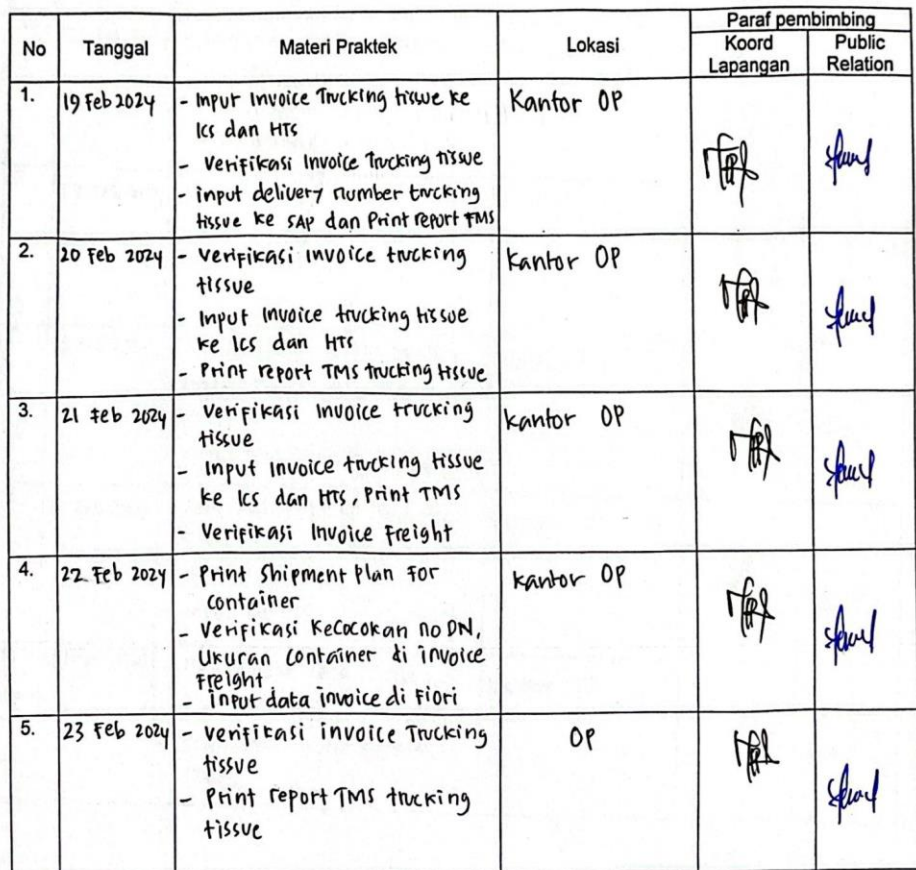 No Tanggal Materi Praktek Lokasi Paraf pembimbing
Koord Lapangan Public Relation
1. 19 Feb 2024 - Input Invoice Trucking tissue ke Kantor OP
Ics dan HTS
- Verifikasi Invoice Trucking tissue
- input delivery number trucking
tissue ke SAP dan Print report TMS
2. 20 Feb 2024 - Verifikasi invoice trucking Kantor OP
tissue
- Input Invoice trucking tissue
ke Ics dan HTS
- Print report TMS trucking tissue
3. 21 Feb 2024 - Verifikasi Invoice trucking Kantor OP
tissue
- Input Invoice trucking tissue
ke Ics dan HTS, Print TMS
- Verifikasi Invoice Freight
4. 22 Feb 2024 - Print Shipment Plan For Kantor OP
container
- Verifikasi Kecocokan no DN,
Ukuran container di invoice
Freight
- input data invoice di Fiori
5. 23 Feb 2024 - Verifikasi invoice Trucking OP
tissue
- Print report TMS trucking
tissue